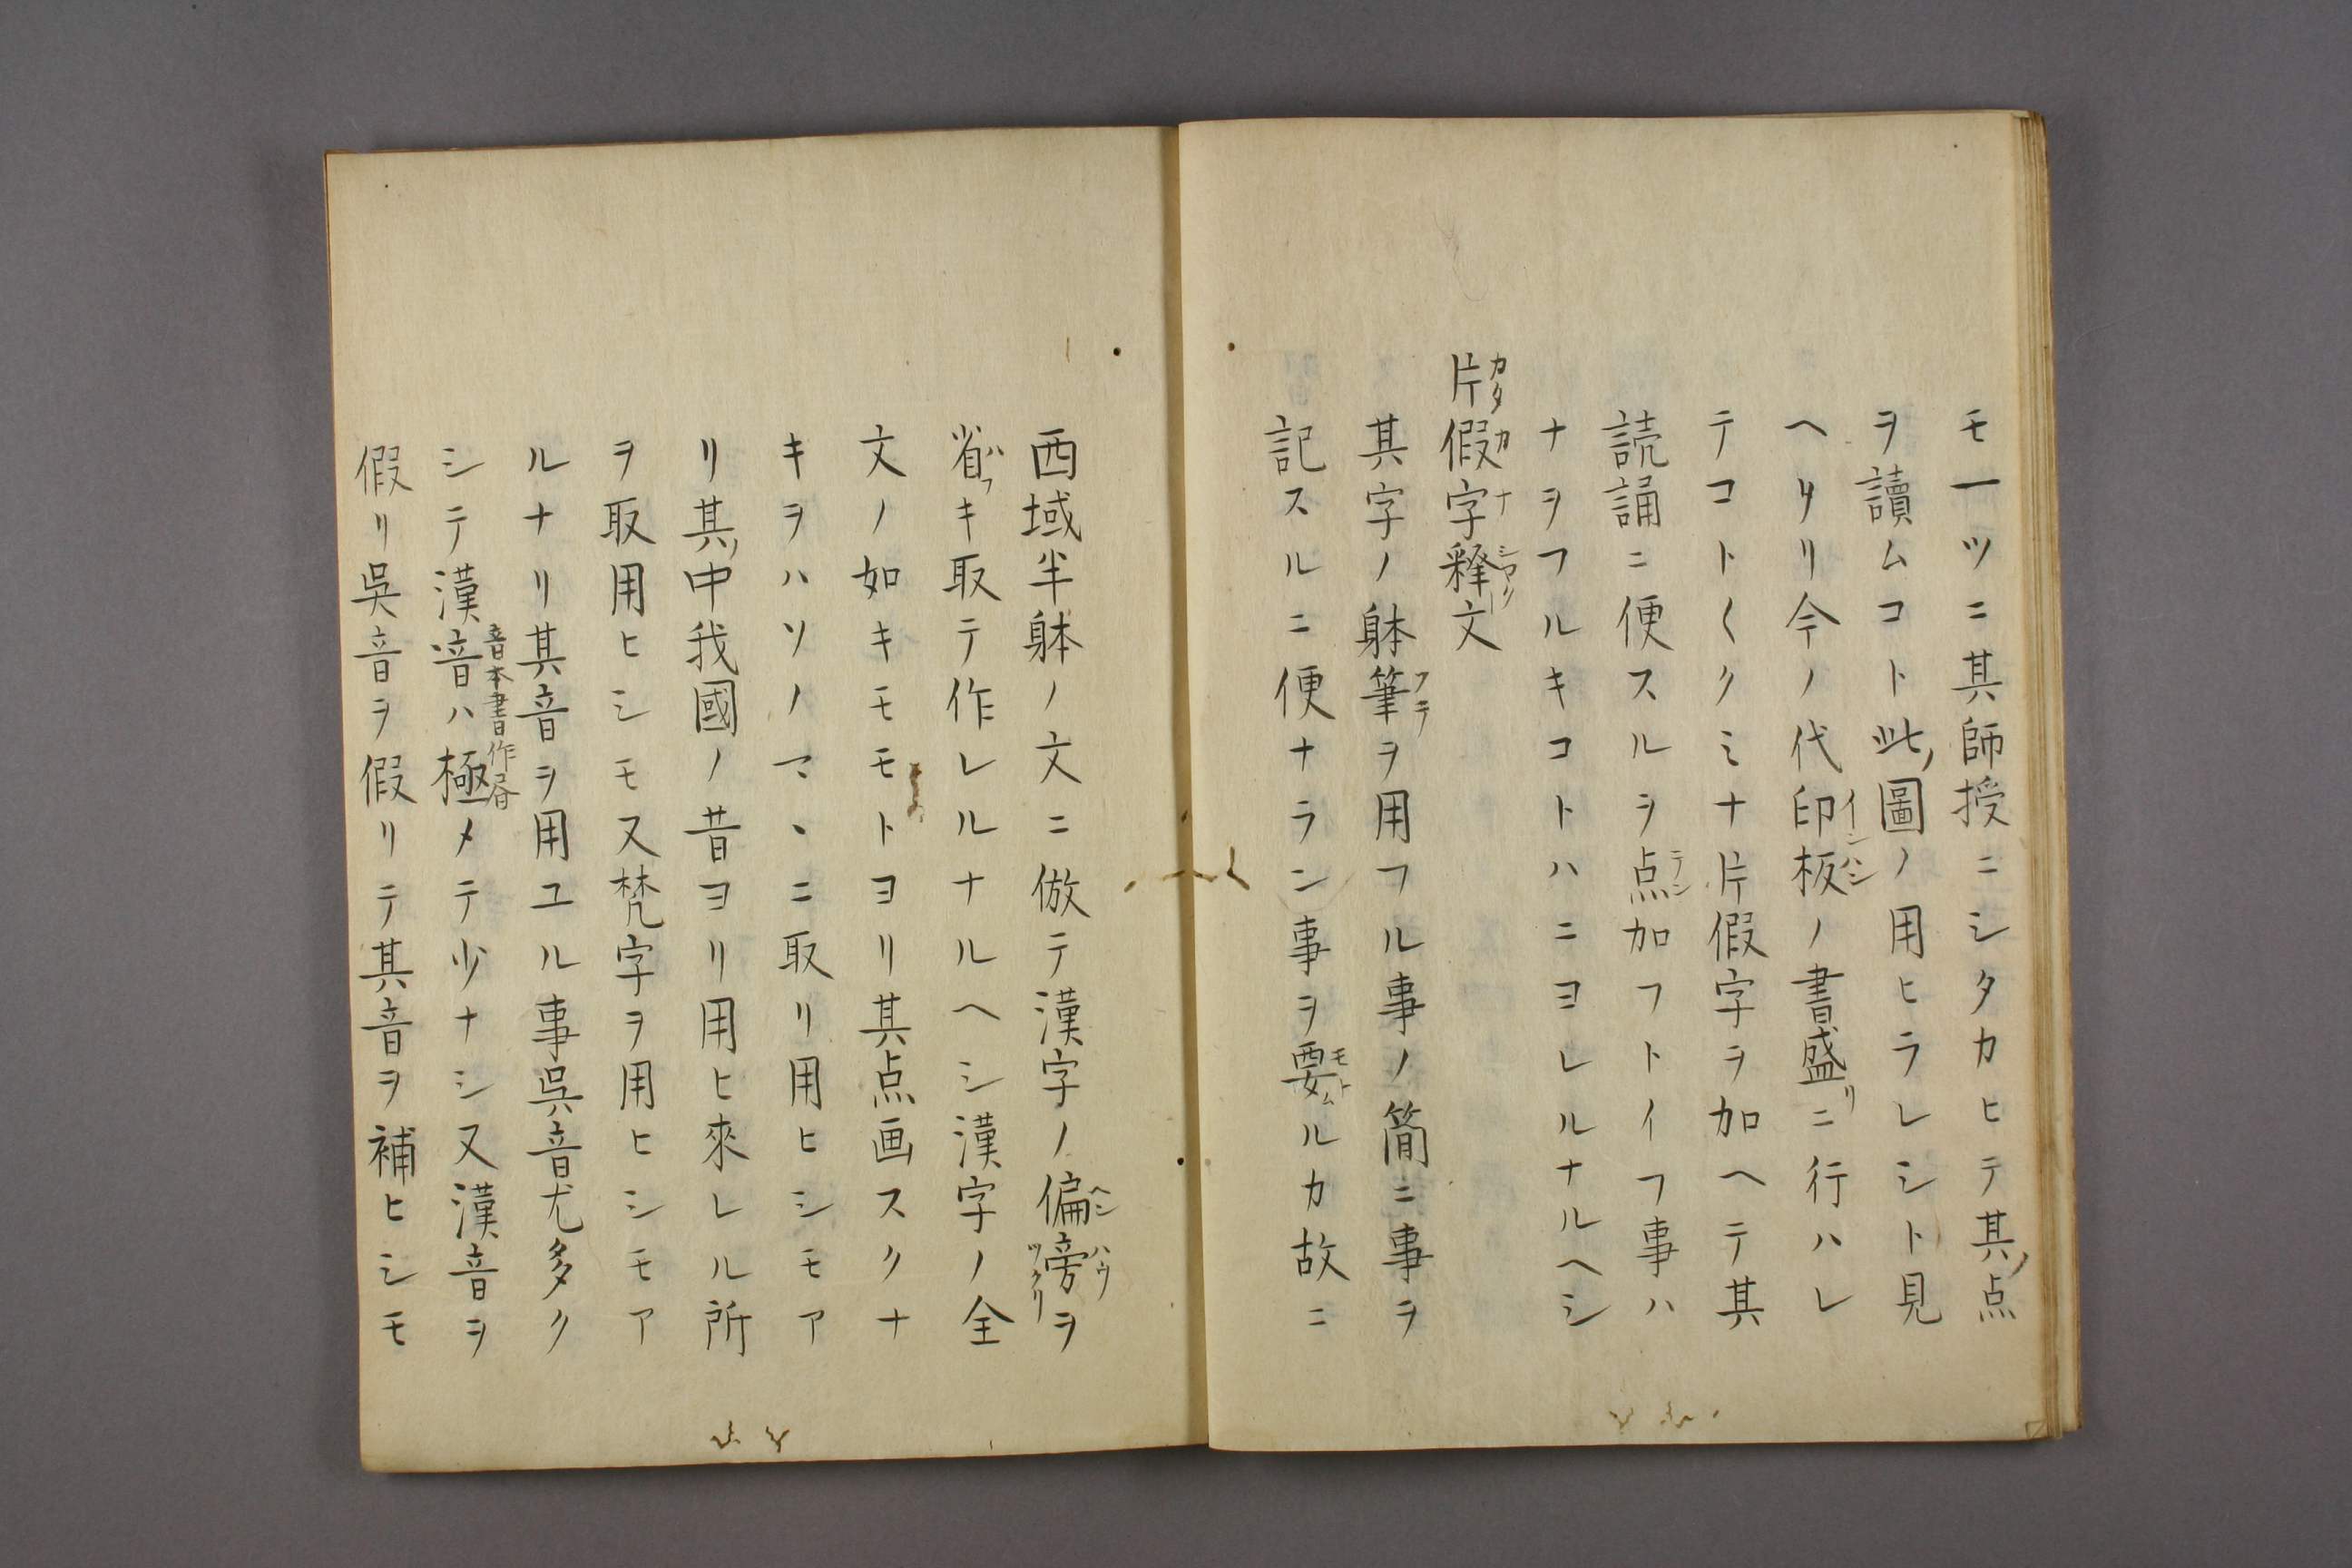 モ一ツニ其師授ニシタカヒテ其ノ点
ヲ讀ムコト此ノ圖ノ用ヒラレシト見
ヘタリ今ノ代印板ノ書盛リニ行ハレ
テコト〱クミナ片假字ヲ加ヘテ其
読誦ニ便スルヲ点加フトイフ事ハ
ナヲフルキコトハニヨレルナルヘシ
片假字釋文
其字ノ躰筆ヲ用フル事ノ簡ニ事ヲ
記スルニ便ナラン事ヲ要ムルカ故ニ
西域半躰ノ文ニ倣テ漢字ノ偏旁ヲ
省フキ取テ作レルナルヘシ漢字ノ全
文ノ如キモモトヨリ其点画スクナ
キヲハソノマヽニ取リ用ヒシモア
リ其ノ中我國ノ昔ヨリ用ヒ來レル所
ヲ取用ヒシモ又梵字ヲ用ヒシモア
ルナリ其音ヲ用ユル事呉音尤多ク
シテ漢音ハ極メテ少ナシ又漢音ヲ
音本書作昚
假リ呉音ヲ假リテ其音ヲ補ヒシモ